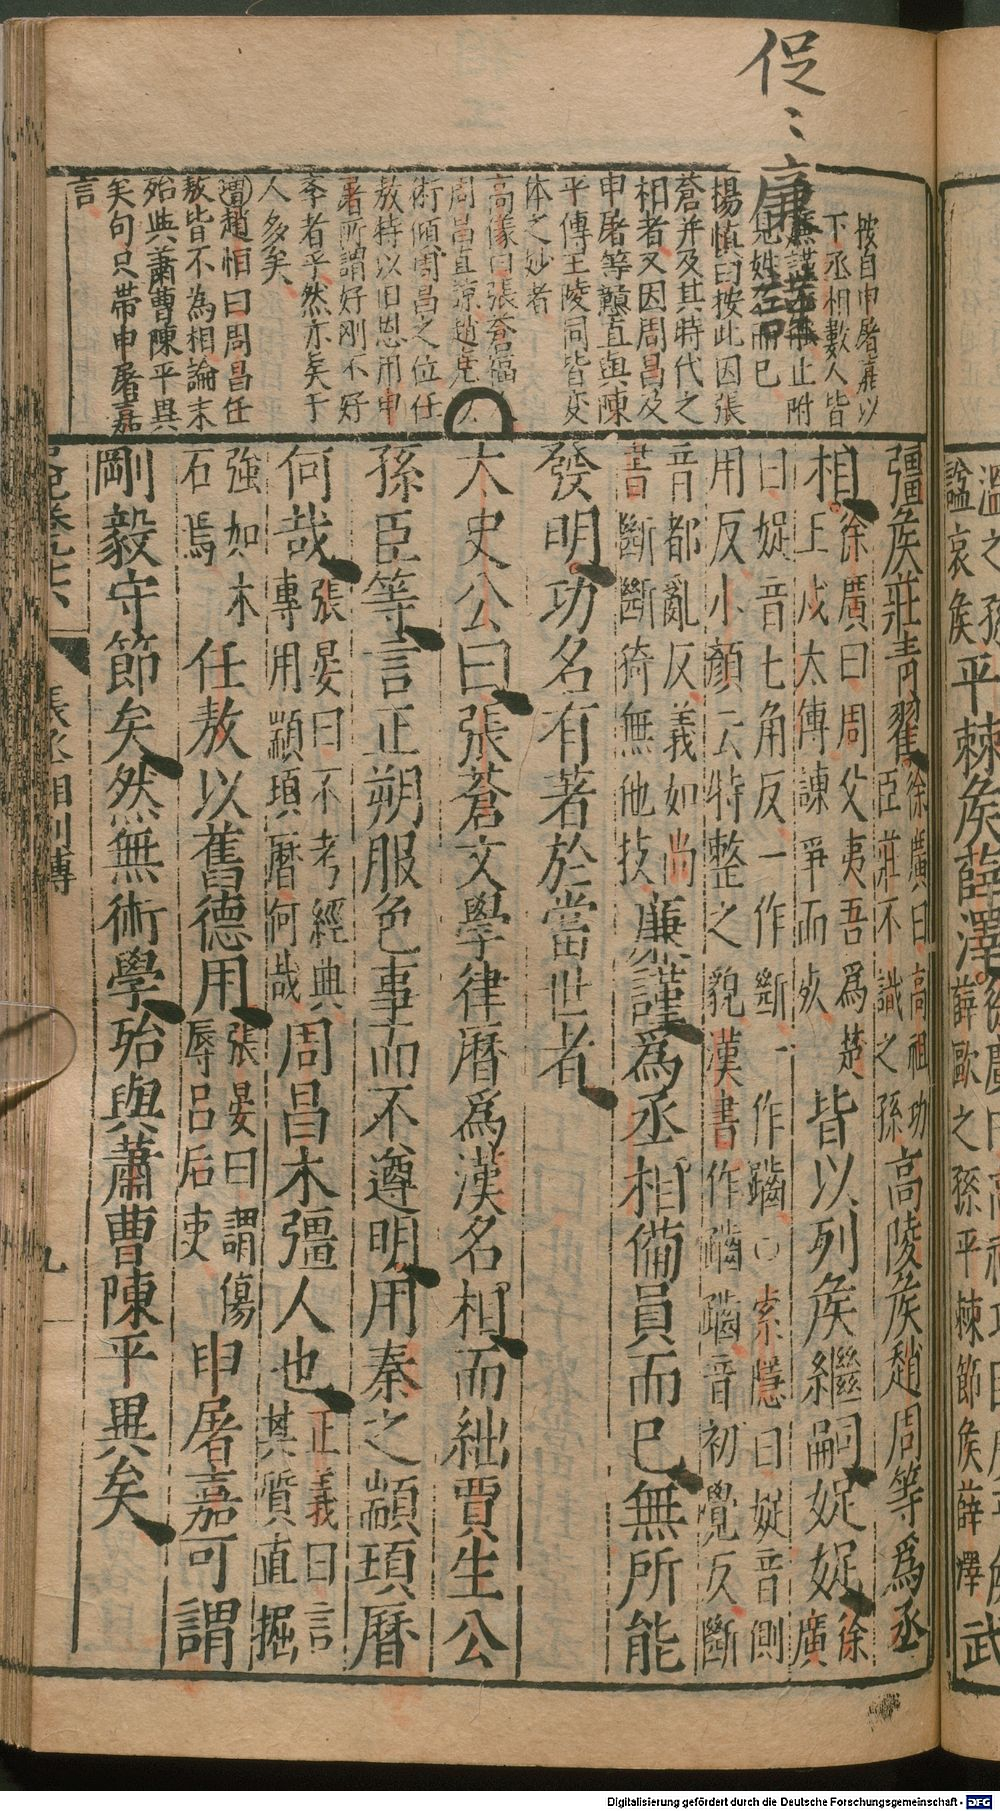 促〻廉
按自申屠嘉以
下丞相數人皆
止附
見姓名而已
楊慎曰按此因張
蒼并及其時代之
相者又因周昌及
申屠等戇直與陳
平傳王陵同皆变
体之妙者
高儀曰張蒼福
術傾周昌之位任
敖特以旧恩用申
屠所謂好刚不好
李者乎然亦矣于
人多矣
趙恒曰周昌任
敖皆不為相論末
殆與蕭曹陳平異
矣句只帶申屠嘉
言
彊矦莊青翟徐廣曰高祖功臣莊不識之孫高陵矦趙周等爲丞
相徐廣曰周父夷吾爲楚上戊太傅諫爭而死皆以列矦繼嗣娖娖徐廣
曰娖音七角反一作斷一作躪○索隱曰娖音側
用反小顏云特整之貌漢書作齱齱音初覺反斷
音都亂反義如尚書斷斷猗無他技廉謹爲丞相備員而已無所能
發明功名有著於當世者
太史公曰張蒼文學律曆爲漢名相而絀賈生公
孫臣等言正朔服色事而不遵明用秦之顓頊曆
何哉張晏曰不考經典專用顓頊曆何哉周昌木彊人也正義曰言其質直掘
強如木石焉任敖以舊德用張晏曰謂傷辱呂后吏申屠嘉可謂
剛毅守節矣然無術學殆與蕭曹陳平異矣
張丞相列傳
九
謚哀矦平棘矦薛澤徐廣曰高祖功臣廣平矦武
薛歐之孫平棘節矦薛澤
Digitalisierung gefördert durch die Deutsche Forschungsgemeinschaft - DFG